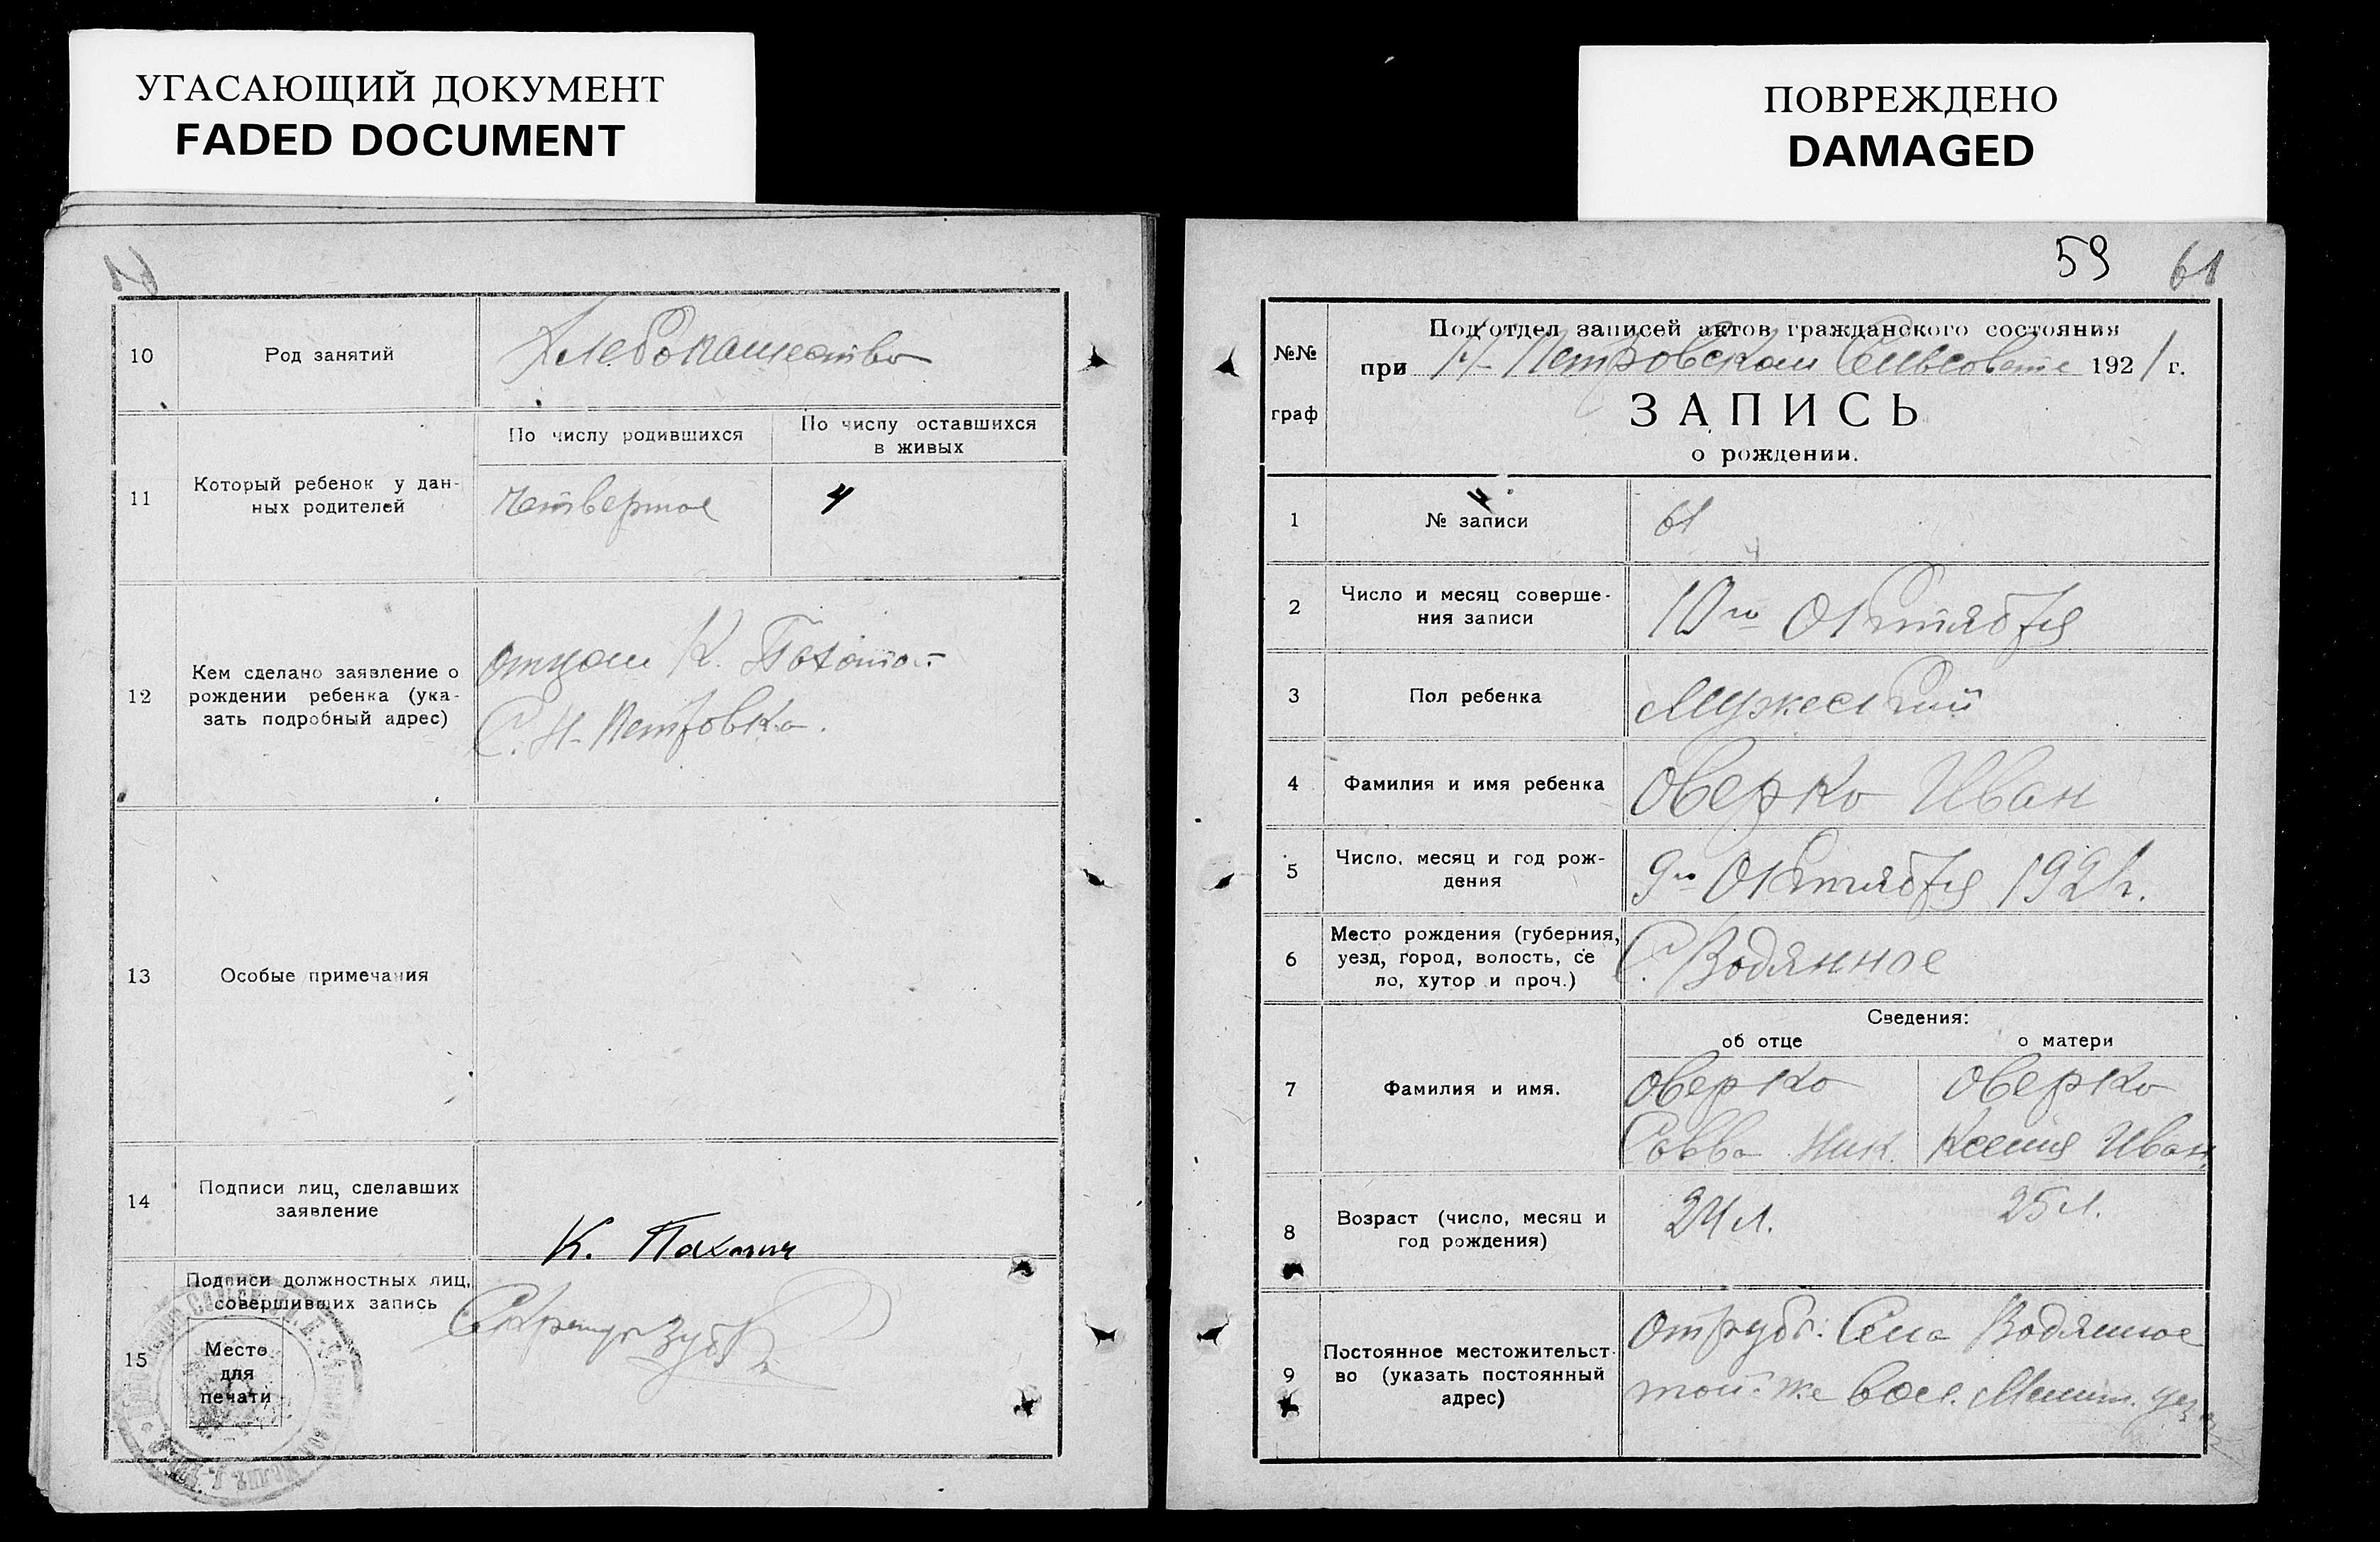 УГАСАЮЩИЙ ДОКУМЕНТ
FADED DOCUMENT
61
10
Род занятий
Хлебопашество
11
Который ребенок у дан-
ных родителей
По числу родившихся
По числу оставшихся
в живых
четвертое
4
12
Кем сделано заявление о
рождении ребенка (ука-
зать подробный адрес)
отцом К.
С. Н-Петровка.
13
Особые примечания
14
Подписи лиц, сделавших
заявление
К.
15
Подписи должностных лиц,
совершивших запись
Место
для
печати
ПОВРЕЖДЕНО
DAMAGED
59 61
№№
граф
Подотдел записей актов гражданского состояния
при Н-Петровском Сельсовете 1921 г.
ЗАПИСЬ
о рождении.
1
№ записи
61
2
Число и месяц соверше-
ния записи
10го Октября
3
Пол ребенка
Мужеский
4
Фамилия и имя ребенка
Оверко Иван
5
Число, месяц и год рож-
дения
9го Октября 1921г.
6
Место рождения (губерния,
уезд, город, волость, се
ло, хутор и проч.)
С. Водянное
Сведения:
об отце
о матери
7
Фамилия и имя.
Оверко
Савва Ник.
Оверко
Ксения Иван.
8
Возраст (число, месяц и
год рождения)
24 л.
25 л.
9
Постоянное местожительст-
во (указать постоянный
адрес)
Отруб. Села Водянное
той-же вол. Мелит. уезда